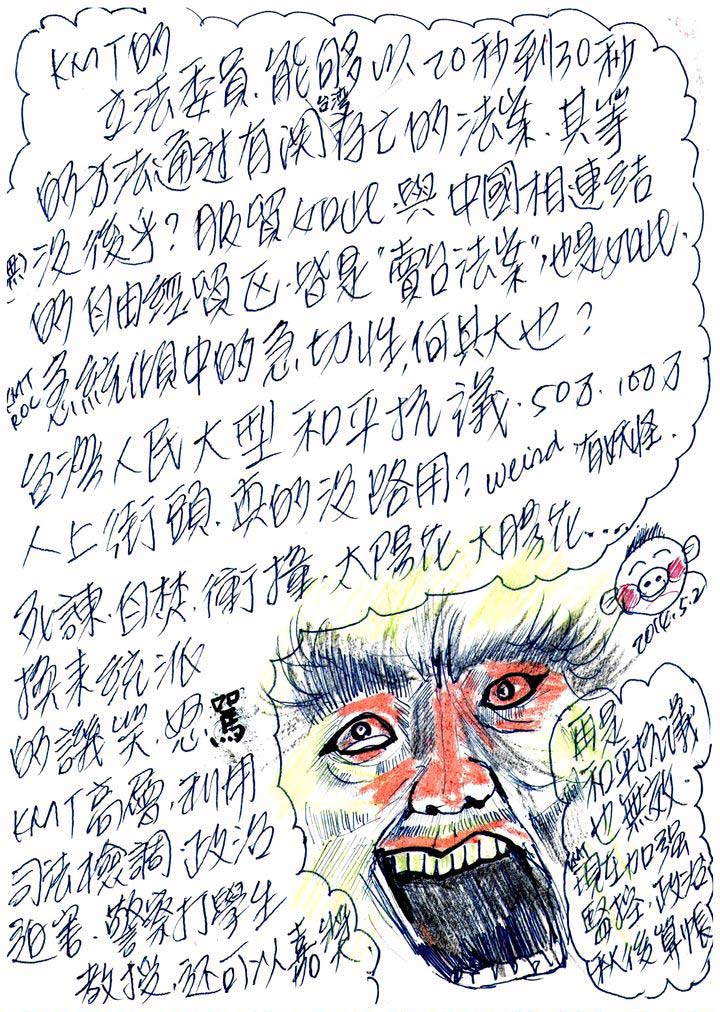 KMT的
立法委員.能夠以20秒到30秒
的方法通过有関台湾存亡的法案.其等
没後乎?服貿如此.與中國相連结
的自由經貿区.皆是"賣台法案"也是如此.
KMT ROC 急統傾中的急切性.何其大也?
台灣人民大型和平抗議.50万.100万
人上街頭.真的没路用?weird 有妖怪.
死諫.自焚.衝撞.太陽花.大腸花....
換来統派
的譏笑.怒罵
KMT高層.利用
司法檢調政治
迫害.警察打學生
教授.还可以嘉獎
2014.5.2
再是
和平抗議
也無效.
KMT現在加强
監控.政治
秋後算帳